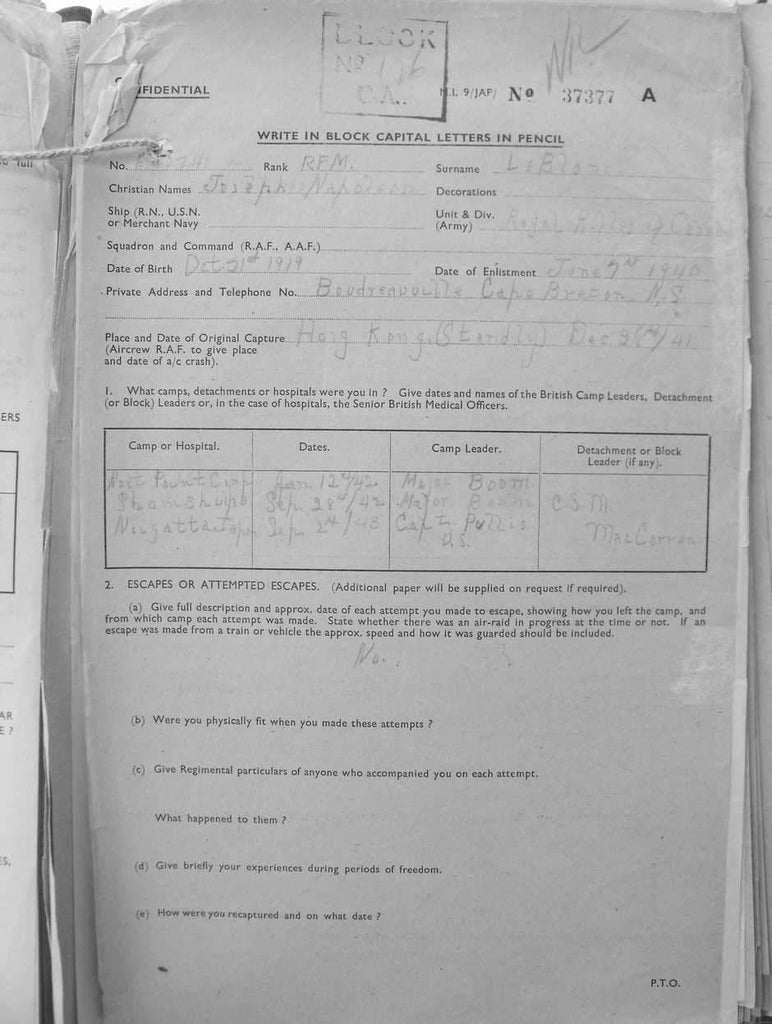 BLOOK
Nº 176
C.A.
NIL
FIDENTIAL
M.I. 9/JAP/ Nº 37377 A
WRITE IN BLOCK CAPITAL LETTERS IN PENCIL
No. Rank RFM. Surname LeBlanc
Christian Names Joseph Napoleon Decorations
Ship (R.N., U.S.N. or Merchant Navy Unit & Div. (Army) Royal Rifles of Canada
Squadron and Command (R.A.F., A.A.F.)
Date of Birth Oct. 21st 1919 Date of Enlistment June 7th 1940
Private Address and Telephone No. Boudreauville Cape Breton N.S.
Place and Date of Original Capture Hong Kong (Standly) Dec. /41
(Aircrew R.A.F. to give place
and date of a/c crash).
1. What camps, detachments or hospitals were you in ? Give dates and names of the British Camp Leaders, Detachment
(or Block) Leaders or, in the case of hospitals, the Senior British Medical Officers.
Camp or Hospital. Dates. Camp Leader. Detachment or Block Leader (if any).
Nort Point Camp 12th/42 Major Boom
Shamshuipo Sep. 28th/42 Major Boom C.S.M.
Niigatta Japan Sep 2nd/43 Capt. Pullis. U.S. MacCorron
2. ESCAPES OR ATTEMPTED ESCAPES. (Additional paper will be supplied on request if required).
(a) Give full description and approx. date of each attempt you made to escape, showing how you left the camp, and
from which camp each attempt was made. State whether there was an air-raid in progress at the time or not. If an
escape was made from a train or vehicle the approx. speed and how it was guarded should be included.
No.
(b) Were you physically fit when you made these attempts ?
(c) Give Regimental particulars of anyone who accompanied you on each attempt.
What happened to them ?
(d) Give briefly your experiences during periods of freedom.
(e) How were you recaptured and on what date ?
P.T.O.
ERS
AR
E ?
ES,